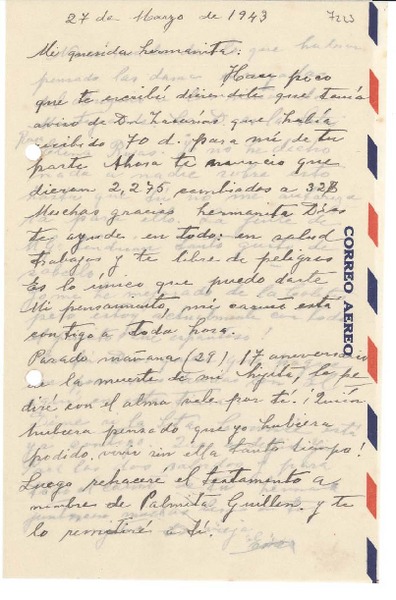 27 de Marzo de 1943
7223
Mi querida hermanita:
Hace poco
que te escribí diciendote que tenía
aviso de Dn Zacarias que había
recibido 70 d. para mí de tu
parte Ahora te anuncio que
dieron 2,275 cambiados a 328
Muchas gracias hermanita Dios
te ayude en todo: en salud
trabajos y te libre de peligros
Es lo único que puedo darte
Mi pensamiento, mi cariño está
contigo a toda hora.
Pasado mañana (29), 17 aniversario
de la muerte de mi hijita, le pe
diré con el alma vele por tí. ¡Quién
hubiera pensado que yo hubiera
podido vivir sin ella tanto tiempo!
Luego reharé el testamento a
nombre de Palmita Guillen y te
lo remitiré a tí.
CORREO AEREO